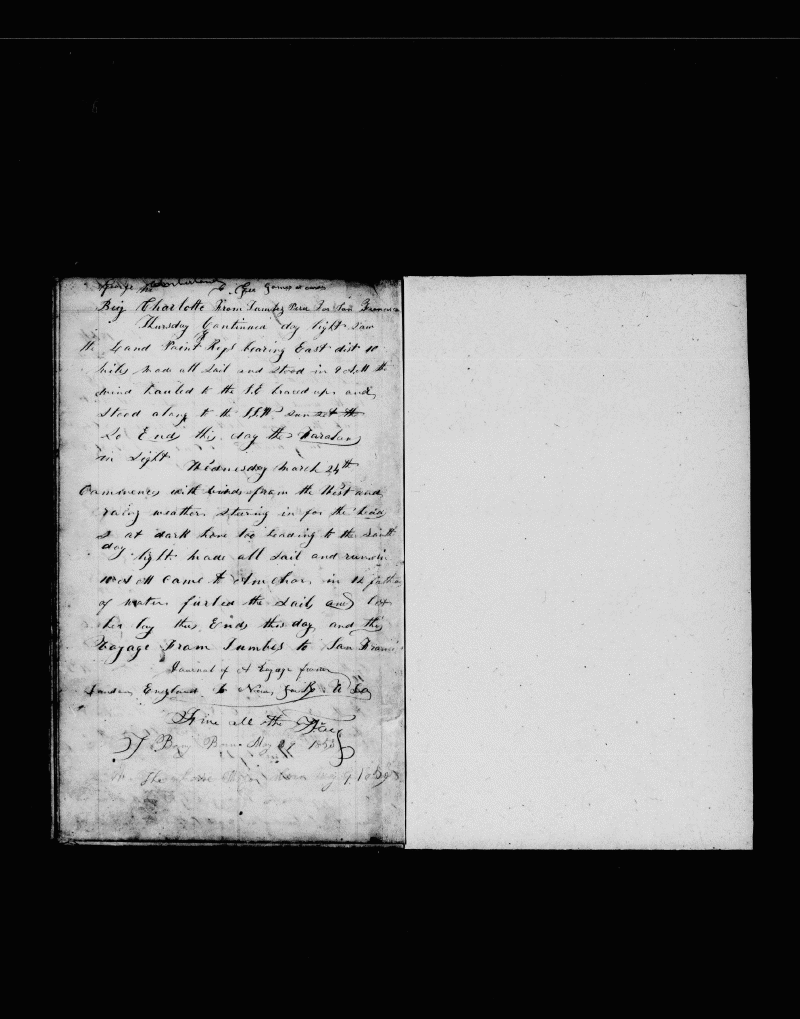 George
Brig Charlotte From Tumbez Peru For San Francisco
Thursday Continued day light Saw
the Land Point Reys bearing East dist 10
miles made all sail and stood in 9 the
wind hauled to the S.E braced up and
stood along to the S.S.W sun set the
So Ends this day the Faralons
in Sight
Wednesday March 24th
Commences with winds from the West and
rainy weather stering in for the land
at dark hove too heading to the South
day light made all sail and run in
10 Came to Anchor in 12 fathoms
of water furled the sails and let
her lay thus Ends this day and this
Voyage From Tumbes to San Franci
Journal of A Voyage from
London England To New York
Fine all the Way
Brig May 1852
The above